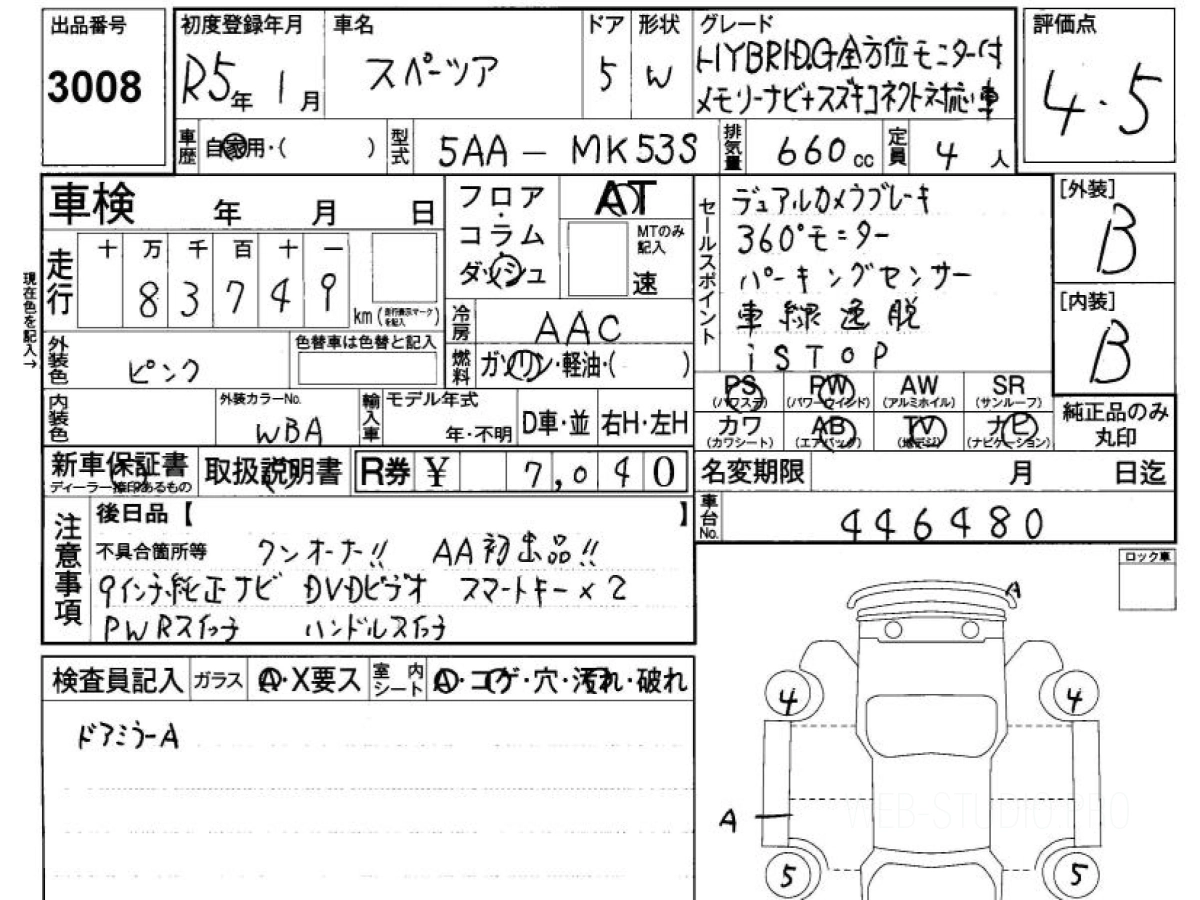 出品番号
3008
初度登録年月
R5年 1月
車名
スペーツア
ドア
5
形状
W
グレード
HYBRID.G全方位モニター付
メモリーナビ+スズキコネクト対応車
評価点
4.5
車歴
自家用・( )
型式
5AA - MK53S
排気量
660cc
定員
4人
車検
年 月 日
フロア・コラム・ダッシュ
AT
MTのみ記入
速
セールスポイント
デュアルカメラブレーキ
360°モニター
パーキングセンサー
車線逸脱
iSTOP
[外装]
B
[内装]
B
現在色を記入→
走行
十 万 千 百 十 一
8 3 7 4 9
km (走行表示マークを記入)
冷房
AAC
燃料
ガソリン・軽油・( )
外装色
ピンク
色替車は色替と記入
PS
(パワステ)
PW
(パワーウインド)
AW
(アルミホイル)
SR
(サンルーフ)
カワ
(カワシート)
AB
(エアバック)
TV
(地デジ)
ナビ
(ナビゲーション)
純正品のみ
丸印
内装色
外装カラーNo.
WBA
輸入車
モデル年式
年・不明
D車・並
右H・左H
新車保証書
ディーラー捺印あるもの
取扱説明書
R券 ¥ 7,040
名変期限
月 日迄
車台No.
446480
注意事項
後日品【 】
不具合箇所等 ワンオーナー!! AA初出品!!
9インチ純正ナビ DVDビデオ スマートキー×2
PWRスイッチ ハンドルスイッチ
ロック車
検査員記入
ガラス
A・X要ス
室内シート
A・コゲ・穴・汚れ・破れ
ドアミラーA
A
4
4
A
5
5
WEB-STUDIO.PRO